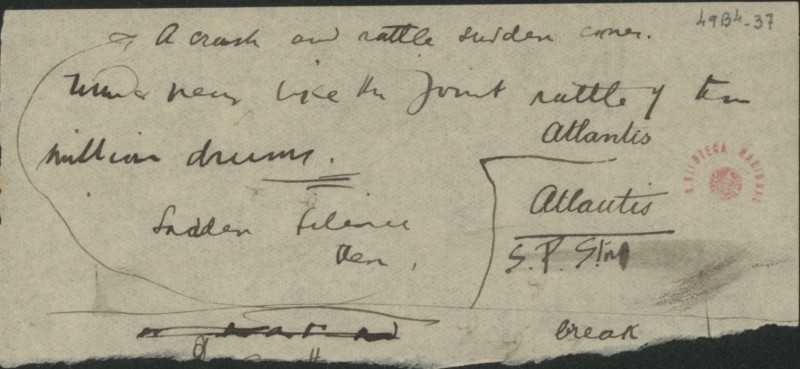 49B4-37
A crash and rattle sudden comes.
near like the joint rattle of ten
million drums.
Sudden silence
then,
Atlantis
Atlantis
S.P.
break
BIBLIOTECA NACIONAL